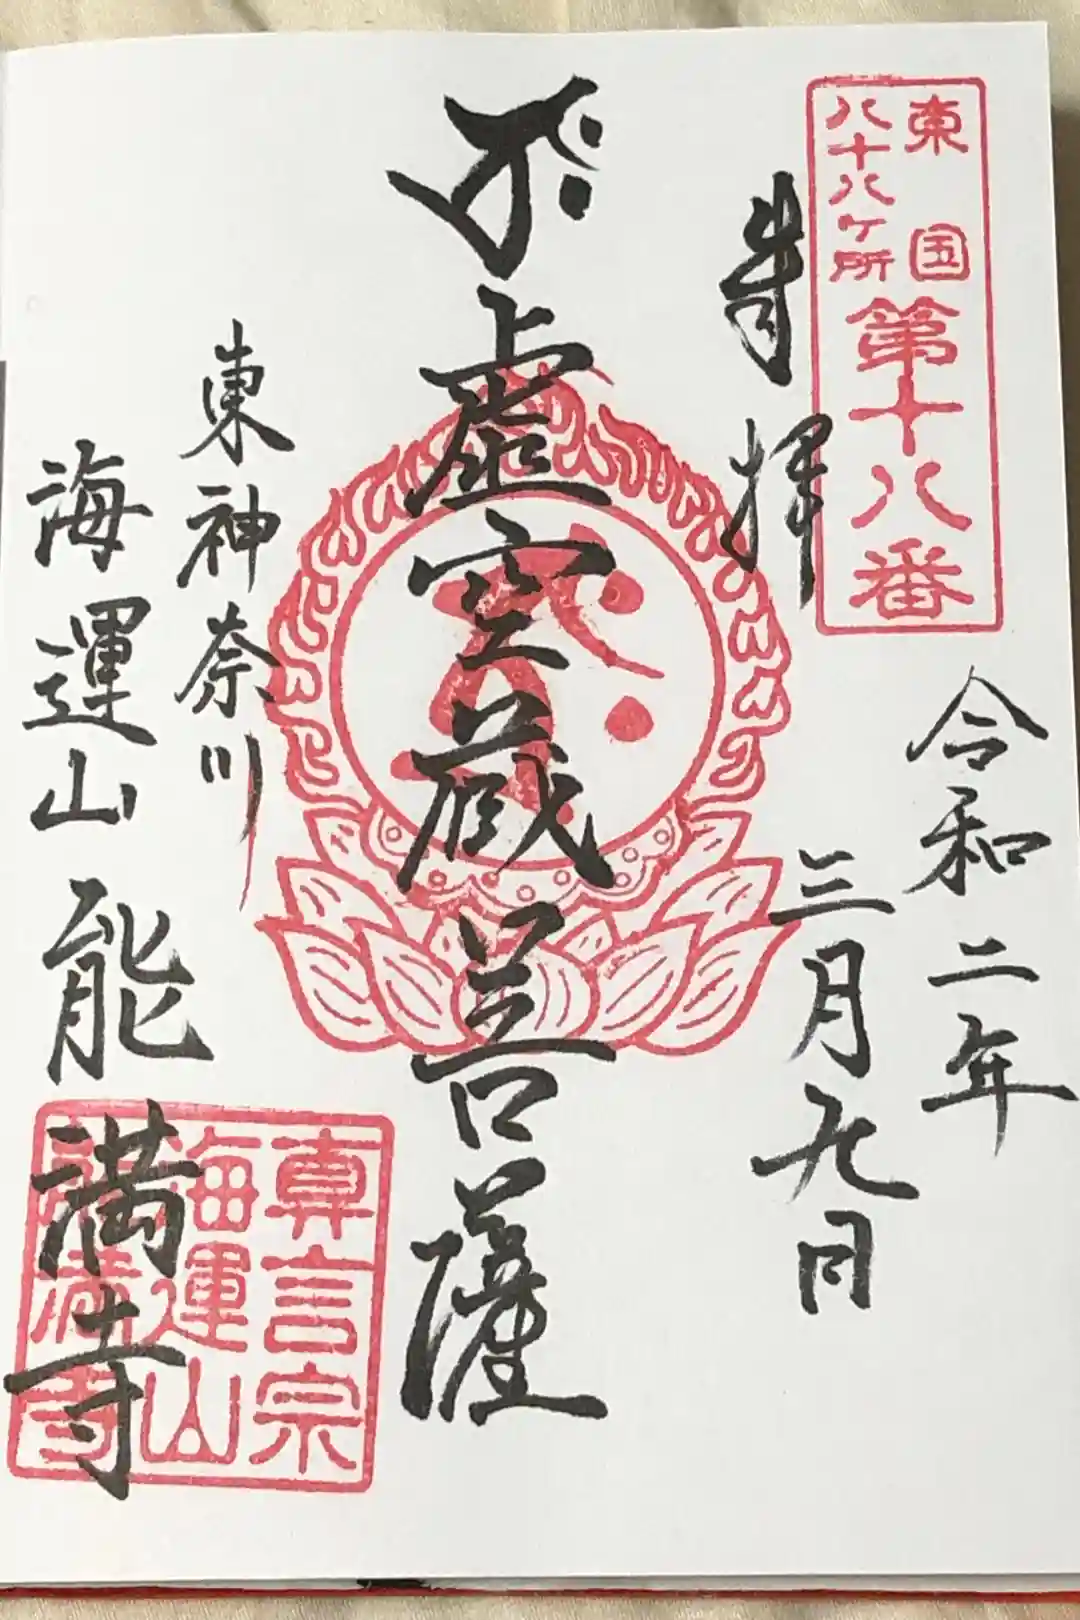 東国
八十八ケ所
第十八番
奉拝
令和二年
三月九日
虚空蔵菩薩
東神奈川
海運山能満寺
真言宗
海運山
能満寺